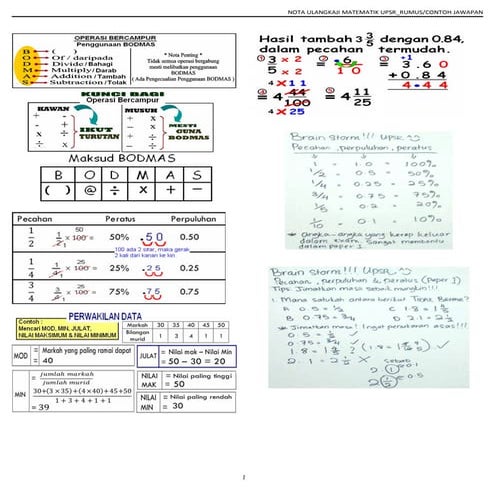 NOTA ULANGKAJI MATEMATIK UPSR_RUMUS/CONTOH JAWAPAN
OPERASI BERCAMPUR
Penggunaan BODMAS
B → ( )
O → Of / daripada
D → Divide/Bahagi
M → Multiply/Darab
A → Addition/Tambah
S → Subtraction/Tolak
* Nota Penting *
Tidak semua operasi bergabung
mesti melibatkan penggunaan
BODMAS
( Ada Pengecualian Penggunaan BODMAS )
KUNCI BAGI
Operasi Bercampur
KAWAN
+ -
x ÷
÷ x
- +
IKUT
TURUTAN
MUSUH
+ x
+ ÷
- x
- ÷
MESTI
GUNA
BODMAS
Maksud BODMAS
B O D M A S
( ) @ ÷ x + −
Pecahan Peratus Perpuluhan
1/2 1/2 x 100 50 1 = 50% .50 0.50
100 ada 2 sifar, maka gerak
2 kali dari kanan ke kiri
1/4 1/4 x 100 25 1 = 25% .25 0.25
3/4 3/4 x 100 25 1 = 75% .75 0.75
PERWAKILAN DATA
Contoh :
Mencari MOD, MIN, JULAT,
NILAI MAKSIMUM & NILAI MINIMUM
Markah 30 35 40 45 50
Bilangan murid 1 3 4 1 1
MOD = Markah yang paling ramai dapat
= 40
JULAT = Nilai mak – Nilai Min
= 50 – 30 = 20
MIN = jumlah markah / jumlah murid
30+(3×35)+(4×40)+45+50 / 1+3+4+1+1
= 39
NILAI MAK = Nilai paling tinggi
= 50
NILAI MIN = Nilai paling rendah
= 30
Hasil tambah 3 3/5 dengan 0.84,
dalam pecahan termudah.
① 3 x 2 / 5 x 2
② .6. / 10
③ 3.60
+ 0.84
4.44
④ 4 44/100 11 25
⑤ 4 11/25
Brain Storm!!! UPSR
Pecahan, perpuluhan, peratus
1 = 1.0 = 100%
1/2 = 0.5 = 50%
1/4 = 0.25 = 25%
3/4 = 0.75 = 75%
1/5 = 0.2 = 20%
1/10 = 0.1 = 10%
* angka-angka yang kerap keluar
dalam exam. Sangat membantu
dalam paper 1
Brain Storm!!! UPSR
Pecahan, perpuluhan & peratus (Paper 1)
Tips: Jimatkan masa sebaik mungkin!!!
1. Mana satukah antara berikut Tidak Benar?
A 0.5 = 1/2 C 1.8 = 1 8/2
B 0.75 = 3/4 D 2.1 = 2 1/2
* Jimatkan masa! Ingat penukaran asas!!!
0.5 = 1/2 ✓
0.75 = 3/4 ✓
1